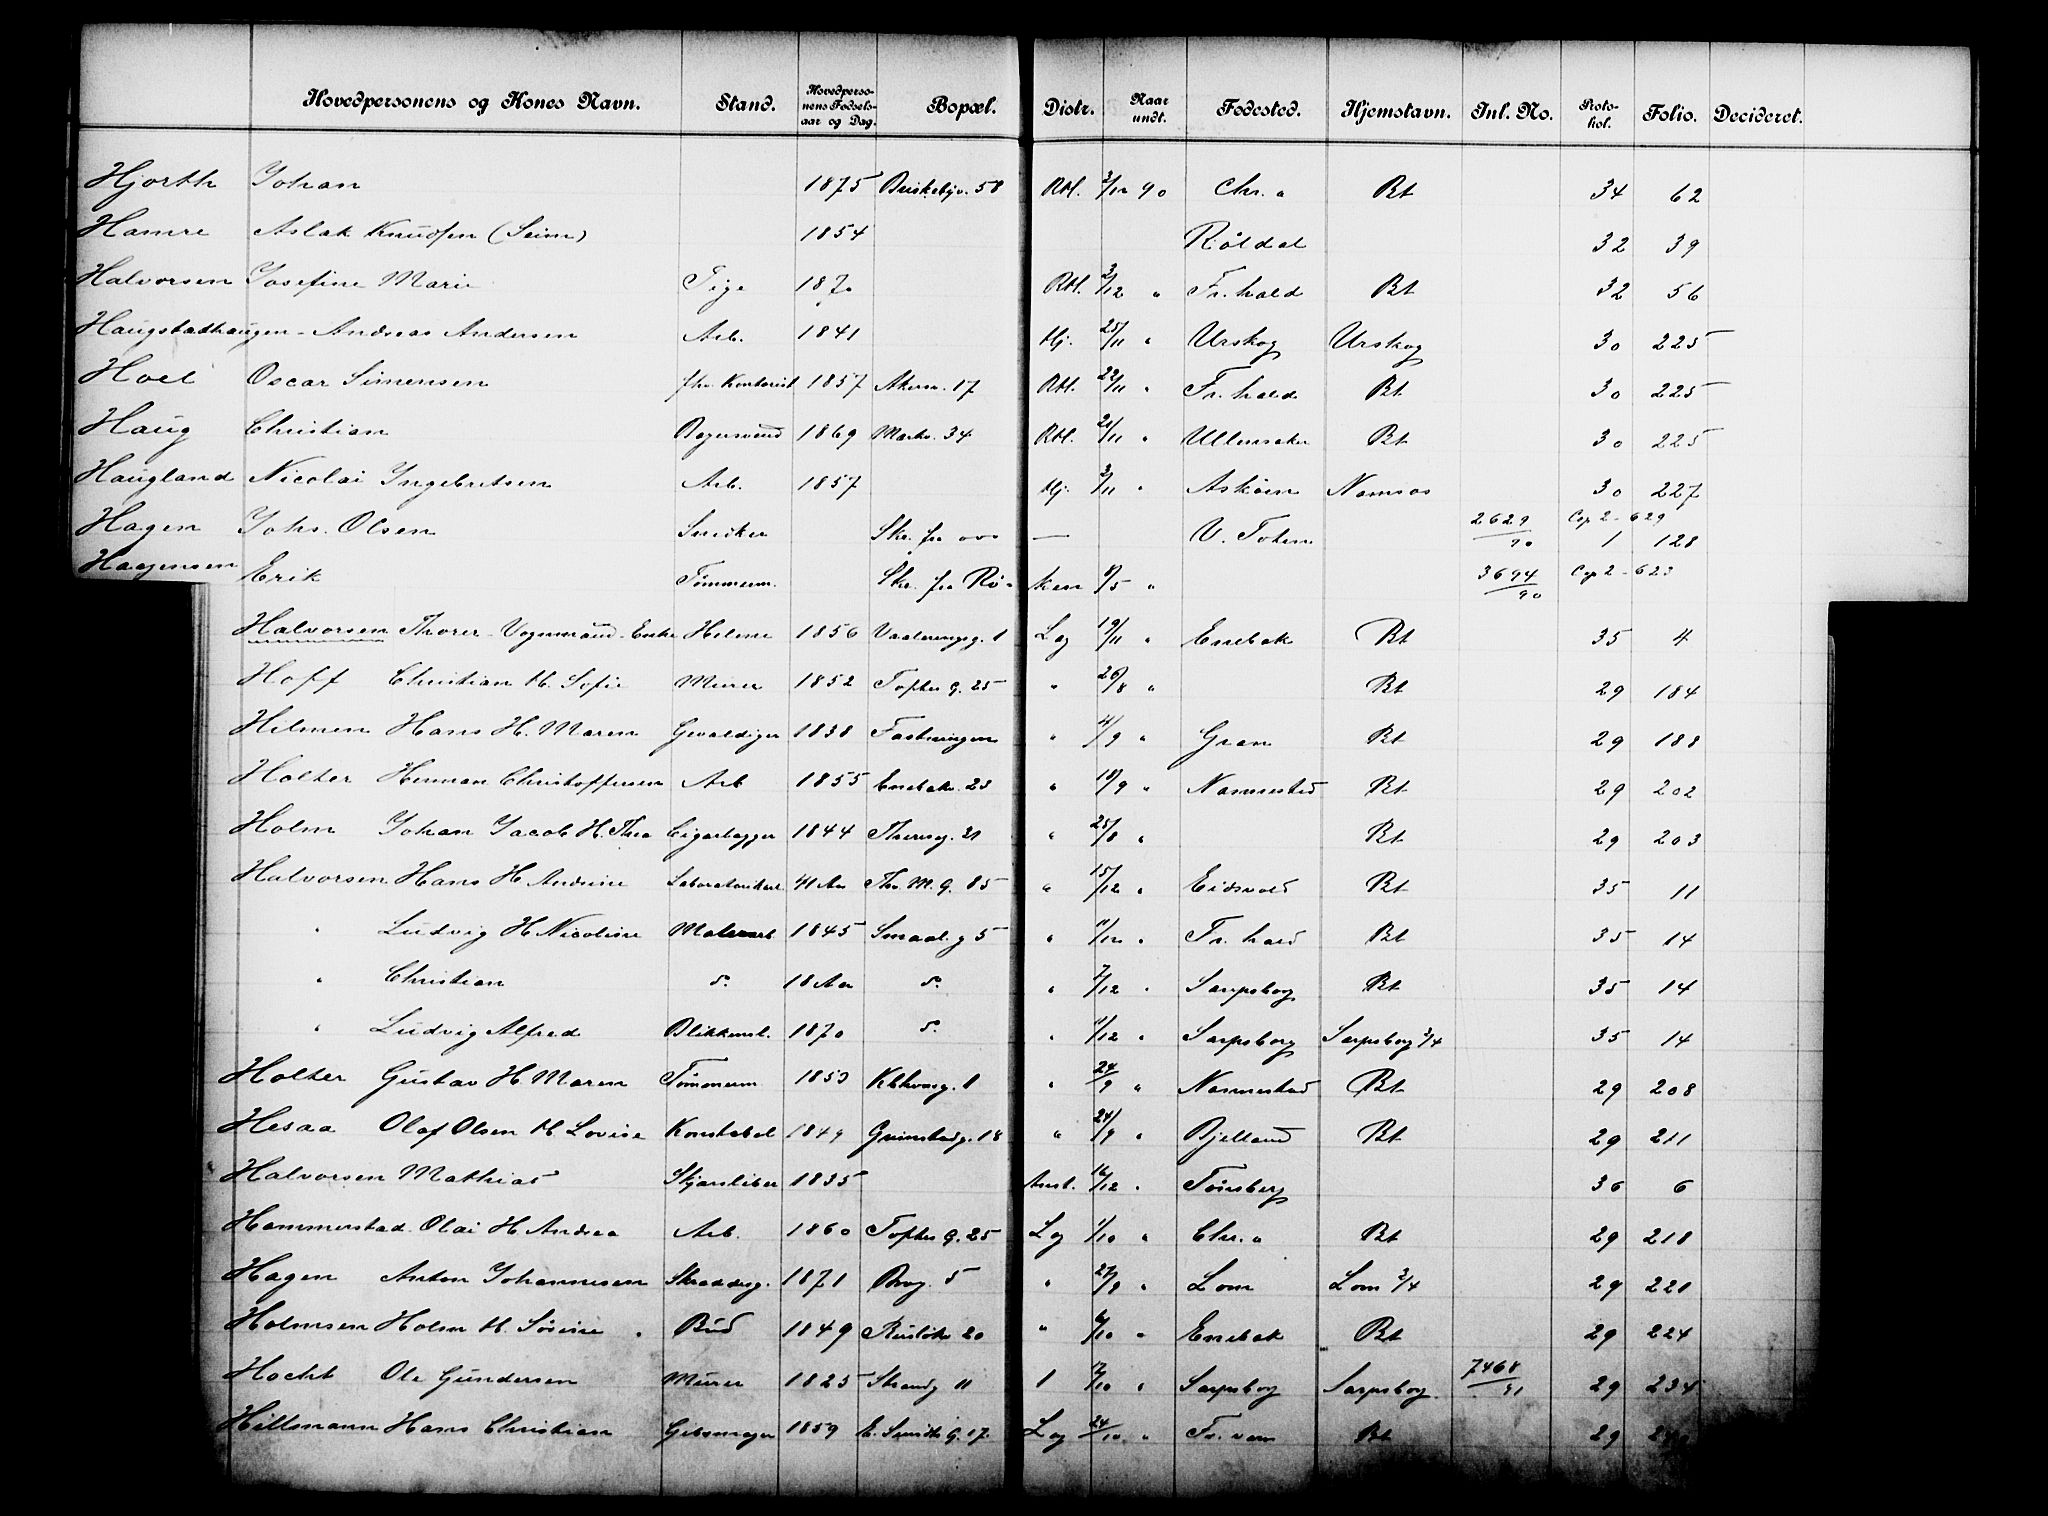 Hovedpersonens og Kones Navn. Stand. Hovedpersonens Fødselsaar og Dag. Bopæl. Distr. Naar undt. Fødested. Hjemstavn. Inl. No. Protokol. Folio. Decideret.
Hjorth Johan 1875 Briskebyv. 58 Rbl. 2/12 90 Chr.a Bt 34 62
Hamre Aslak Knudsen (Seim) 1854 Røldal 32 39
Halvorsen Josefine Marie Pige 1870 Rbl. 2/12 " Fr.hald Bt 32 56
Haugstadhaugen - Andreas Andersen Arb. 1841 Hj. 25/11 " Urskog Urskog 30 225
Hoel Oscar Simensen fhv. Kontorist 1857 Akersv. 17 Rbl. 22/11 " Fr.hald Bt 30 225
Haug Christian Bagersvend 1869 Markv. 34 Rbl. 20/11 " Ullensaker Bt 30 225
Haugland Nicolai Ingebretsen Arb. 1857 Hj. 2/11 " Askøen Namsos 30 227
Hagen Johs. Olsen Snedker Skr. fra — V. Toten 2629/90 Cop 2 - 629 1 128
Haagensen Erik Tømmerm. Skr. fra Røken /5 " 3694/90 Cop 2 - 623
Halvorsen Thorer - Vognmand - Enke Helene 1856 Vaalerengsg. 1 Log 19/11 " Enebak Bt 35 4
Hoff Christian H. Sofie Murer 1852 Toftes G. 25 " 26/8 " Bt 29 184
Hilmen Hans H. Maren Gevaldiger 1838 Fæstningen " 4/9 " Gran Bt 29 188
Holter Herman Christoffersen Arb 1855 Enebakv. 23 " 18/9 " Nannestad Bt 29 202
Holm Johan Jacob H. Thea Cigarlagger 1844 Theresesg. 31 " 25/8 " Bt 29 203
Halvorsen Hans H Andrine Laboratoriearb. 41 Aar Thv. M. G. 85 " 15/12 " Eidsvold Bt 35 11
" Ludvig H Nicoline Malerarb 1845 Smaal. g 5 " 11/12 " Fr.hald Bt 35 14
" Christian d. 18 Aar d. " 7/12 " Sarpsborg Bt 35 14
" Ludvig Alfred Blikkensl. 1870 d. " 11/12 " Sarpsborg Sarpsborg 3/4 35 14
Holter Gustav H Maren Tømmerm 1853 " 24/9 " Nannestad Bt 29 208
Hesaa Olaf Olsen H. Lovise Konstabel 1849 Grimstadg. 18 " 24/9 " Bjelland Bt 29 211
Halvorsen Mathias Skjærsliber 1835 Anst. 16/12 " Tønsberg 36 6
Hammerstad Olai H Andrea Arb. 1860 Toftes G. 25 Log 1/10 " Chr.a Bt 29 218
Hagen Anton Johannesen Skræddersv. 1871 Brog. 5 " 27/9 " Lom Lom 2/4 29 221
Holmsen Holm H. Sørine Bud 1849 Ruseløk. 20 " 6/10 " Enebak Bt 29 224
Hocht Ole Gundersen Murer 1825 Strandg 11 1 17/10 " Sarpsborg Sarpsborg 7468/91 29 234
Hiltsmann Hans Christian Gibsmager 1859 E. Sundts G. 17. Log 24/10 " Fr.værn Bt 29